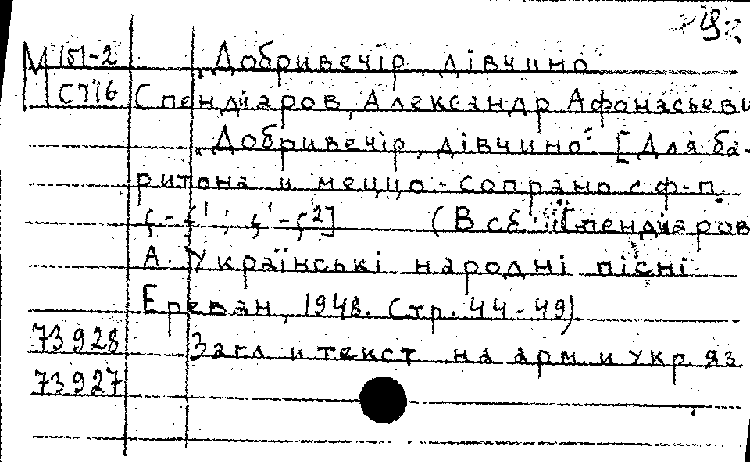 М 151-2 „Добривечір, дівчино"
С716 Спендиаров, Александр Афанасьеви
„Добривечір, дівчино". [Для ба-
ритона и меццо-сопрано с ф-п.
(В сб.: Спендиаров
А. Українські народні пісні
Ереван, 1948. Стр. 44-49).
73928 Загл и текст на арм и укр яз
73927